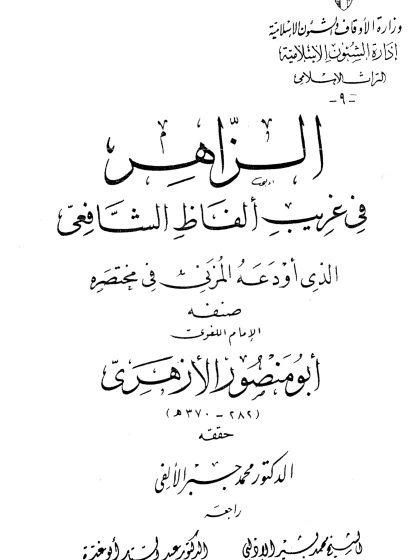 وزارة الأوقاف والشئون الإسلامية
إدارة الشئون الإسلامية
التراث الإسلامي
-٩-
الزاهر
في غريب ألفاظ الشافعي
الذي أودعه المزني في مختصره
صنفه
الإمام اللغوي
أبو منصور الأزهري
(٢٨٢ - ٣٧٠ هـ)
حققه
الدكتور محمد جبر الألفي
راجعه
الشيخ محمد بشير الإدلبي الدكتور عبد الستار أبو غدة